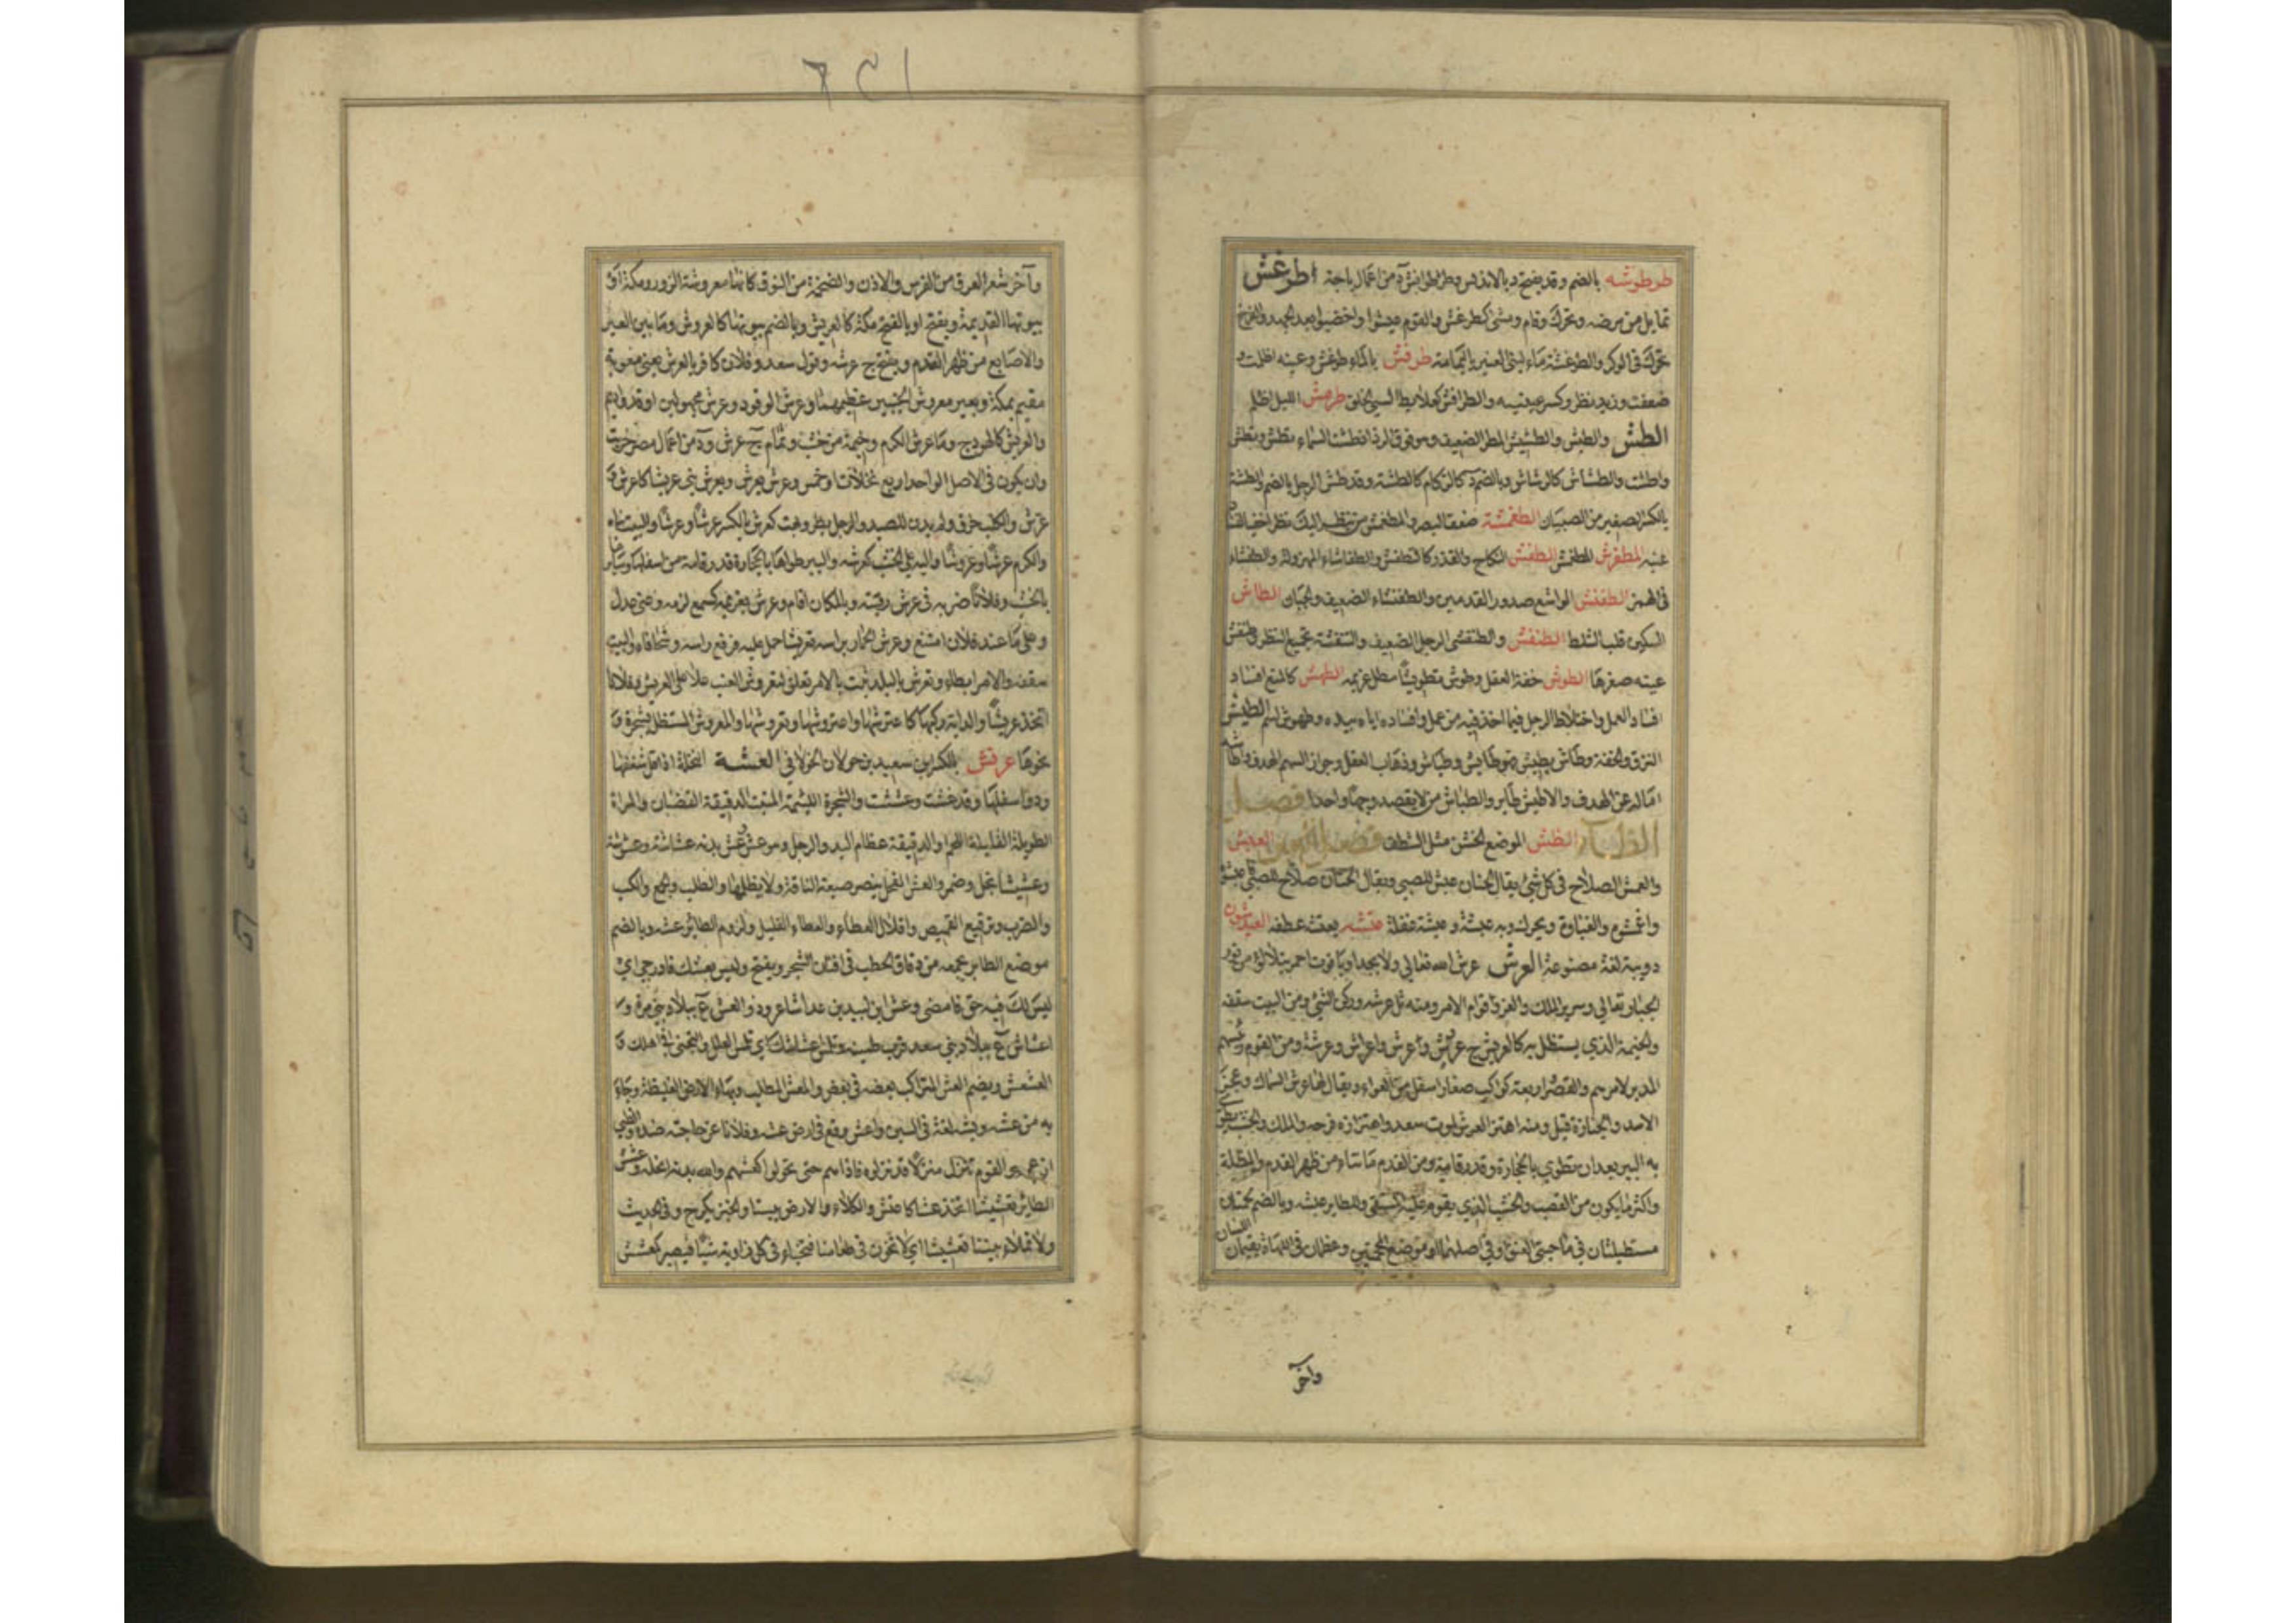 طرطوشه بالضم وقد يفتح د بالاندلس وطرطوانش ة من اعمال باجة اطرغش
تماثل من مرضه وتحرك وقام ومشى كطرغش والقوم غيثوا واخصبوا بعد الجهد والفرخ
تحرك في الوكر والطرغشة ماء لبني العنبر باليمامة طرفش بالفاء طرغش وعينه اظلمت و
ضعفت وزيد نظر وكسر عينيه والطرافش كعلابط السيئ الخلق طرمش الليل اظلم
الطش والطش والطشيش المطر الضعيف وهو فوق الرذاذ طشت السماء تطش وتطش
واطشت والطشاش كالرشاش وبالضم د كالزكام كالطشة وقد طش الرجل بالضم والطشة
بالكسر الصغير من الصبيان الطغمشة ضعف البصر والمطغمش من ينظر اليك نظرا خفيا لفساد
عينه المطفرش المطغمش الطفش النكاح والقذر كالطفش والطفاشاء المهزولة والطفشاء
في الهمز الطفنش الواسع صدور القدمين والطفنشاء الضعيف والجبان الطاش
السكين قلب الشلط الطنفش والطنفشى الرجل الضعيف والطنفشة تحميج النظر وطنفش
عينه صغرها الطوش خفة العقل وطوش تطويشا مطل غريمه الطهش كالمنع افساد
افساد العمل واختلاط الرجل فيما اخذ فيه من عمل وافساده اياه بيده وطهوش اسم الطيش
النزق والخفة وطاش يطيش فهو طايش وطياش وذهاب العقل وجواز السهم الهدف واطاشه
اماله عن الهدف والاطيش طاير والطياش من لا يقصد وجها واحدا فصل
الظاء الظش الموضع الخشن مثل الشظف فصل العين العبش
والعمش الصلاح في كل شئ يقال الختان عبش للصبي ويقال الختان صلاح للصبي عبش
واعمش والغباوة ويحرك وبه عبشة وعبشة غفلة عتشه يعتشه عطفه العيدشون
دويبة لغة مصنوعة العرش عرش الله تعالى ولا يحد او ياقوت احمر يتلالؤ من نور
الجبار تعالى وسرير الملك والعز وقوام الامر ومنه ثل عرشه وركن الشئ ومن البيت سقفه
والخيمة الذي يستظل به كالعريش ج عروش وعرش واعراش وعرشة ومن القوم رئيسهم
المدبر لامرهم والقصر واربعة كواكب صغار اسفل من العواء ويقال لها عرش السماك وعجز
الاسد والجنازة قيل ومنه اهتز العرش لموت سعد واهتزازه فرحه والملك والخشب تطوى
به البير بعد ان تطوى بالحجارة قدر قامة ومن القدم ما نتأ من ظهر القدم والمظلة
واكثر ما يكون من القصب والخشب الذي يقوم عليه المستقي وللطاير عشه وبالضم لحمتان
مستطيلتان في ناحيتي العنق او في اصلها او موضع المحجمتين وعظمان في اللهاة يقيمان اللسان
وآخر
وآخر شعر العرف من الفرس والاذن والضخمة من النوق كانها معروشة الزور ومكة او
بيوتها القديمة ويفتح او بالفتح مكة كالعريش وبالضم بيوتها كالعروش وما بين العير
والاصابع من ظهر القدم ويفتح ج عرشه وقول سعد وفلان كافر بالعرش يعني معوية
مقيم بمكة وبعير معروش الجنبين عظيمهما وعرش الوقود وعرش مجهولين اوقد واديم
والعريش كالهودج وما عرش للكرم وخيمة من خشب وثمام ج عرش و د من اعمال مصر خربت
وان يكون في الاصل الواحد اربع نخلات او خمس وعرش يعرش ويعرش بنى عريشا كاعرش و
عرش والكلب خرق ولم يدن للصيد والرجل بطر وبهت كعرش بالكسر عرشا وعرشا والبيت بناه
والكرم عرشا وعروشا واليه على الخشب كعرشه والبير طواها بالحجارة قدر قامة من اسفلها وسايرها
بالخشب وفلانا ضربه في عرش رقبته وبالمكان اقام وعرش بغريمه كسمع لزمه وعني عدل
وعلى ما عند فلان امتنع وعرش الحمار براسه تعريشا حمل عليه فرفع راسه وشحا فاه والبيت
سقفه والامر ابطا وتعرش بالبلد ثبت بالامر تعلق اعتعروش العنب علا على العريش وفلانا
اتخذ عريشا والدابة ركبها كاعترشها واعروشها وتعروشها والمعروش المستظل بشجرة و
نحوها عرنش بالكسر ابن سعيد بن حولان الخولاني العشة النخلة اذا قل سعفها
ودق اسفلها وقد عشت وعششت والشجرة اللئيمة المنبت الدقيقة القضبان والمراة
الطويلة القليلة اللحم او الدقيقة عظام اليد والرجل وهو عش وعش بدنه عشاشة وعشوشة
وعششا نحل وضمر والعش الفحل يبصر ضبعة الناقة ولا يظلمها والطلب والجمع والكسب
والضرب وترقيع القميص واقلال العطاء والعطاء القليل ولزوم الطائر عشه وبالضم
موضع الطاير يجمعه من دقاق الحطب في افنان الشجر ويفتح وليس بعشك فادرجي اي
ليس لك فيه حق فامضي وعش ابن لبيد بن عداء شاعر وذو العش ع ببلاد بني مرة و
اعشاش ع ببلاد بني سعد قرب طمية وتلمس اعشاشك اي تلمس العلل والتجني في اهلك و
العشعش ويضم العش المتراكب بعضه في بعض والمعش المطلب وبهاء الارض الغليظة وجاء
به من عشه وبشه لغة في السين واعش وقع في ارض عشه وفلانا عن حاجته صده والظبي
ازعجه والقوم نزل منزلا قد نزلوه فاذاهم حتى تحولوا كعشهم والله بدنه انحله وعشش
الطائر تعشيشا اتخذ عشا كاعتش والكلأ والارض يبسا والخبز يكرج وفي الحديث
ولا تملا بيتنا تعشيشا اي لا تخون في طعامنا فتخبأ في كل زاوية شيئا فيصير كعشش